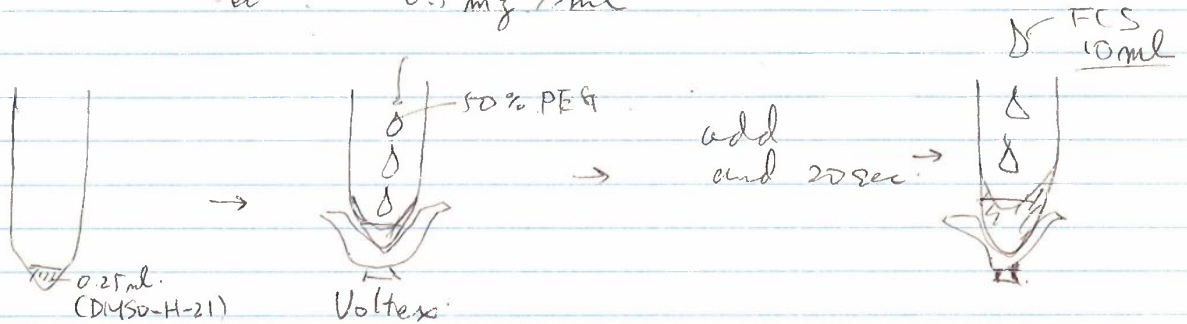 0.5 mg / ml
FCS
10ml
50% PEG
add
and 20 sec.
0.25ml.
(DMSO-H-21)
Voltex.